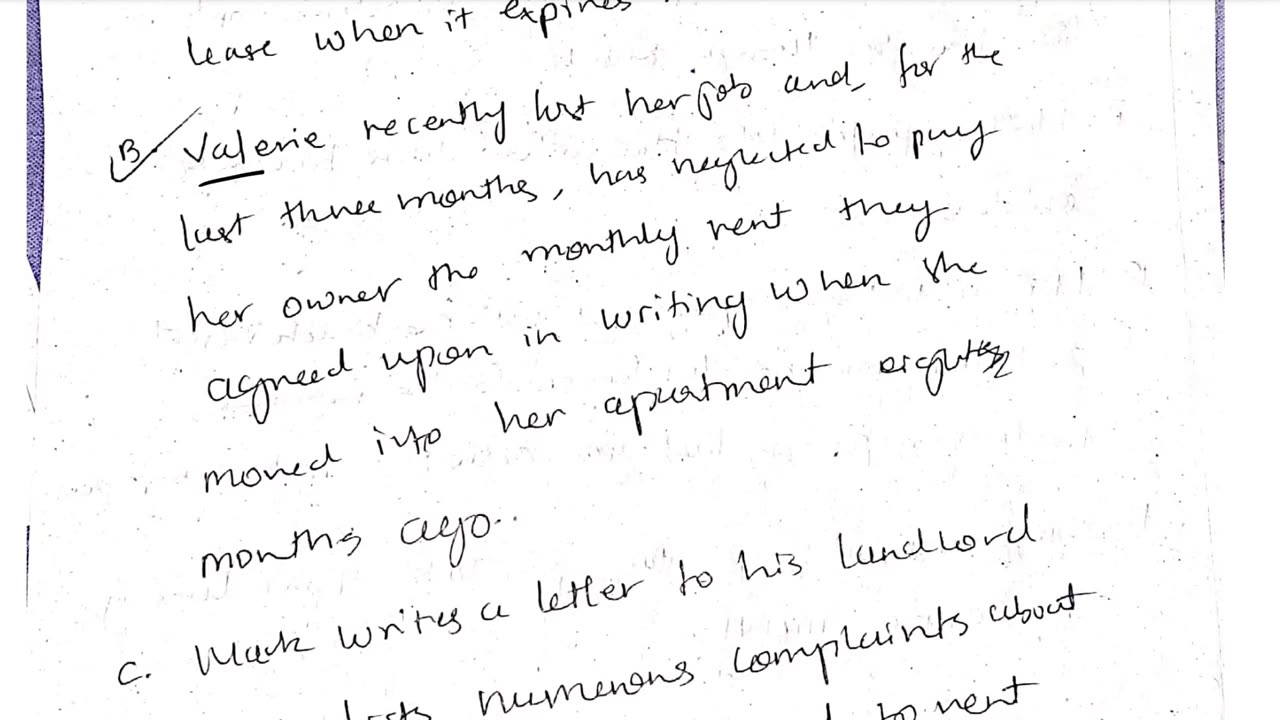 lease when it expires
B. Valerie recently lost her job and, for the
last three months, has neglected to pay
her owner the monthly rent they
agreed upon in writing when she
moved into her apartment eight
months ago.
C. Mark writes a letter to his landlord
lists numerous complaints about
to rent